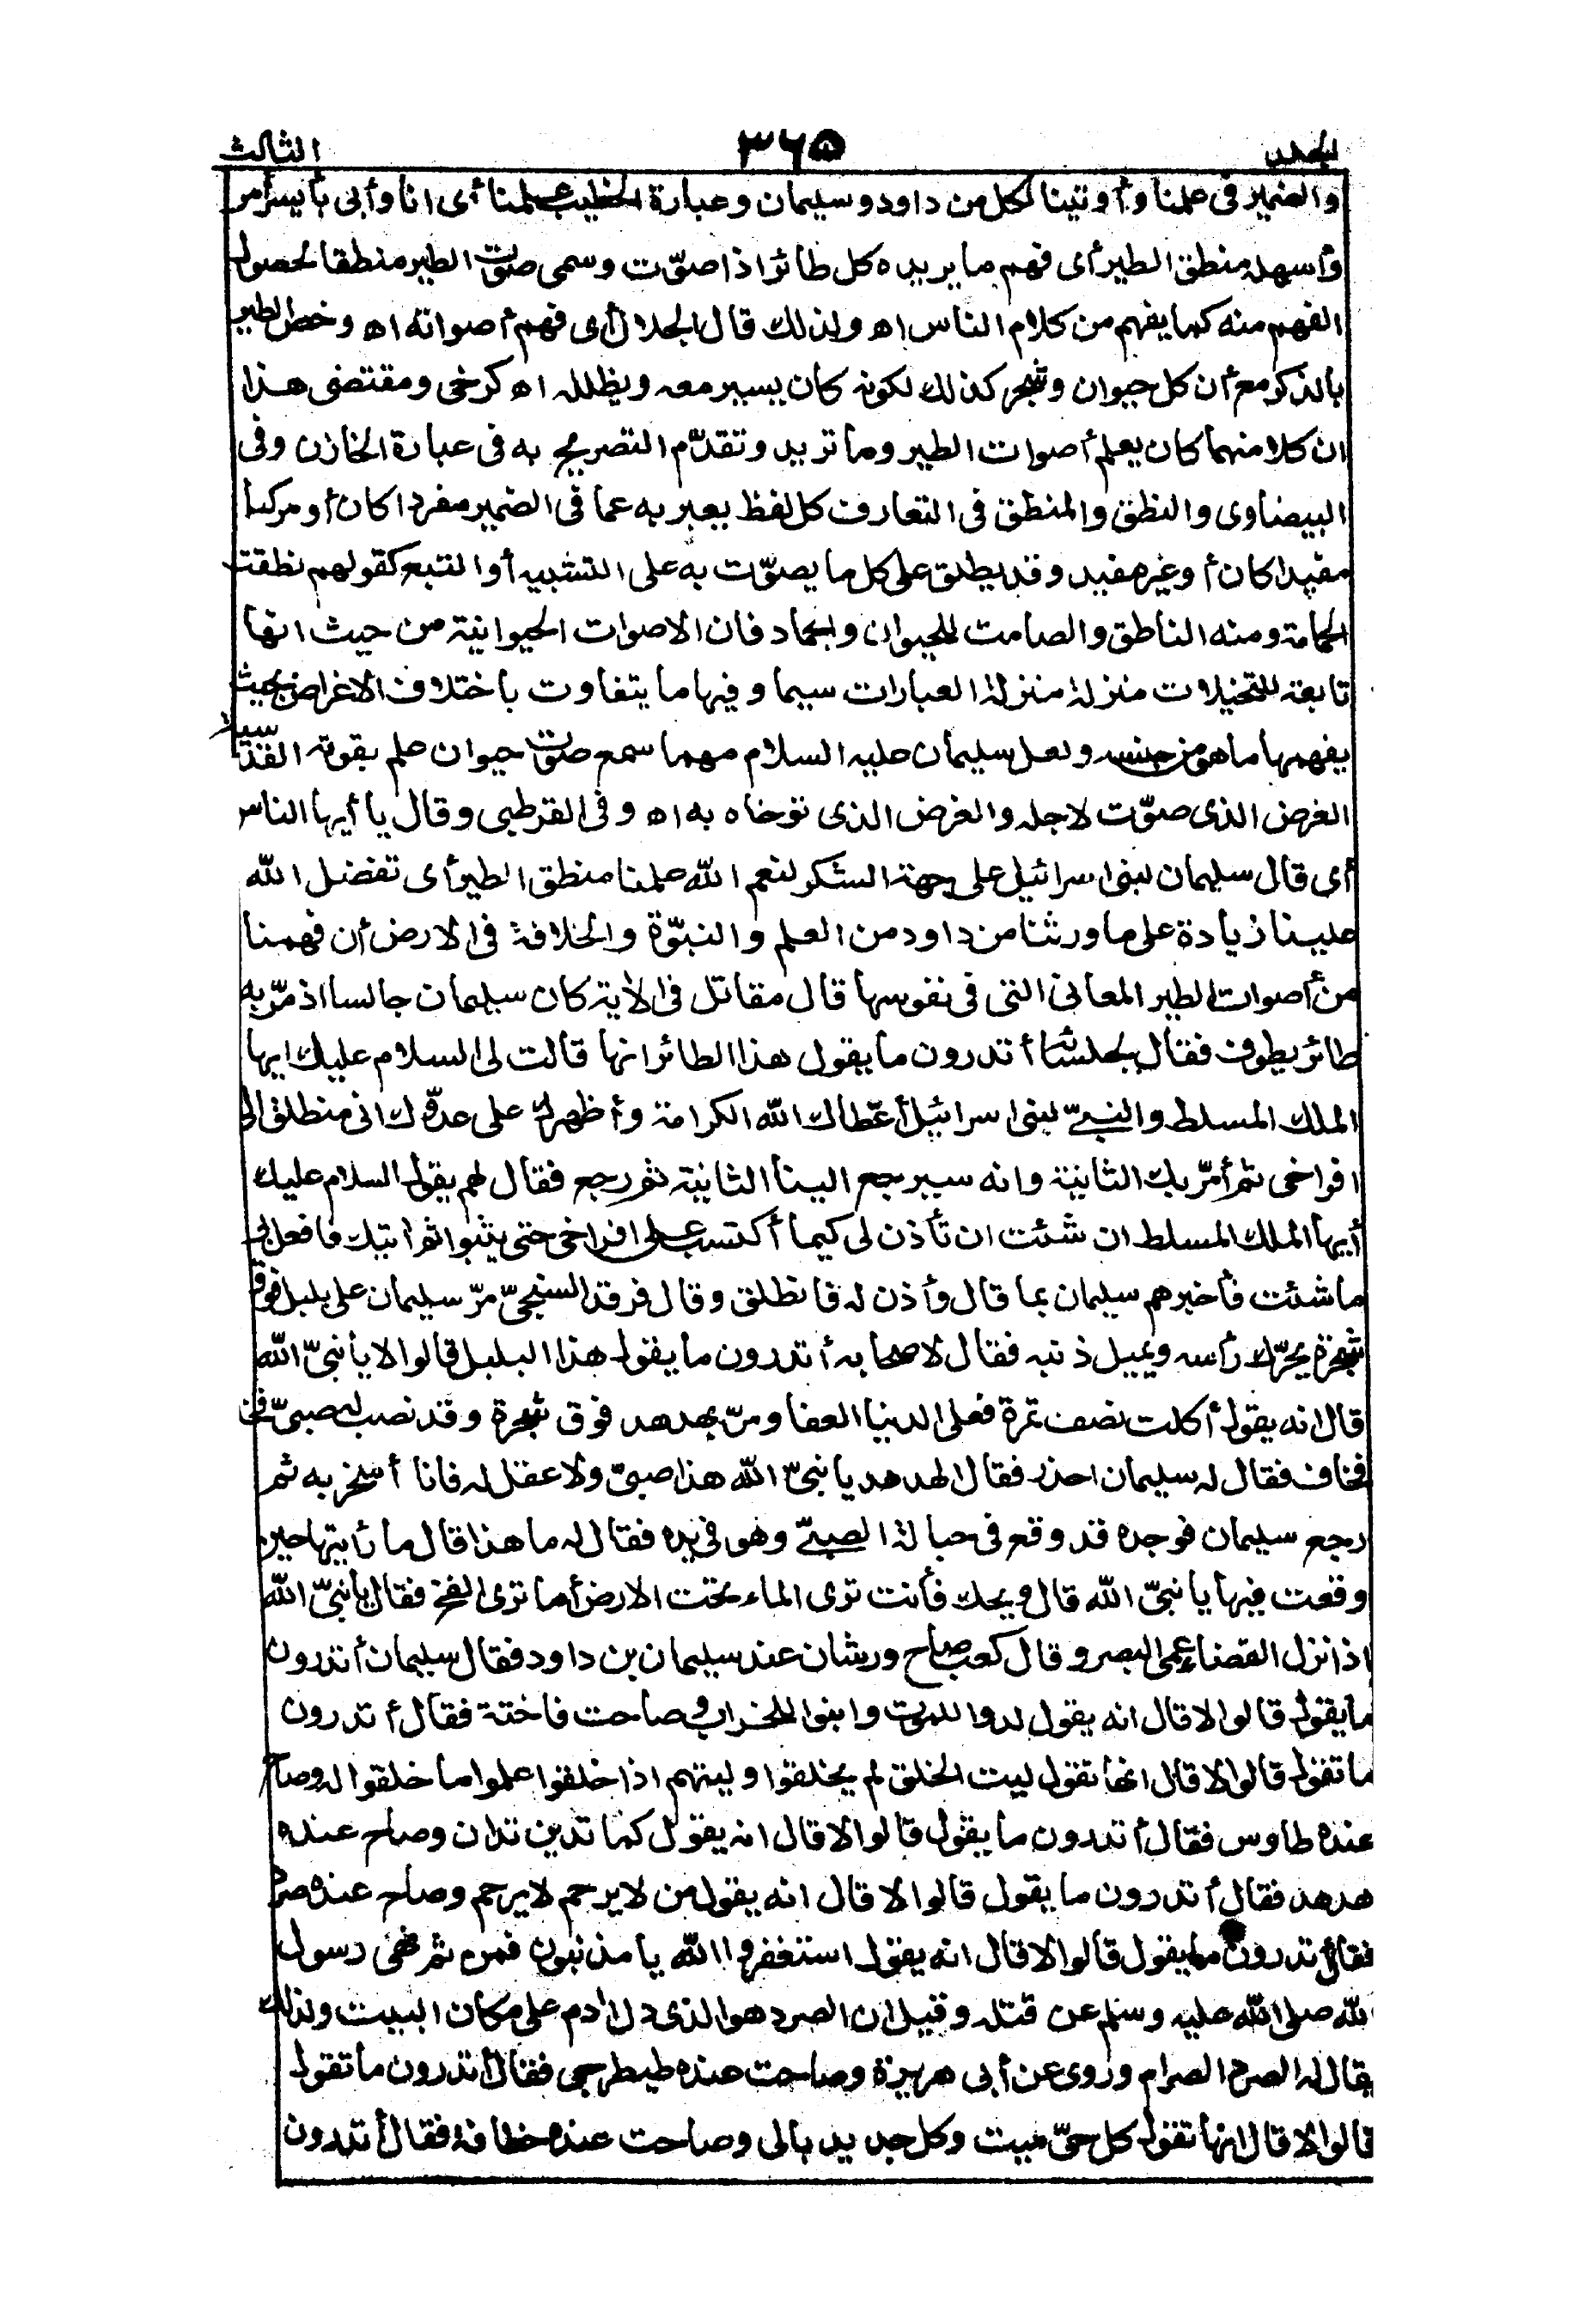 الجلد ٣٦٥ الثالث
والضمير فى علمنا وأوتينا لكل من داود وسليمان وعبارة الخطيب علمنا أى انا وأبى بأيسر أمر
وأسهله منطق الطير أى فهم ما يريده كل طائر اذا صوّت وسمى صوت الطير منطقا لحصول
الفهم منه كما يفهم من كلام الناس اه ولذلك قال الجلال أى فهم أصواته اه وخص الطير
بالذكر مع أن كل حيوان وشجر كذلك لكونه كان يسير معه ويظلله اه كرخى ومقتضى هذا
ان كلا منهما كان يعلم أصوات الطير وما تريد وتقدّم التصريح به فى عبارة الخازن وفى
البيضاوى والنطق والمنطق فى التعارف كل لفظ يعبر به عما فى الضمير مفردا كان أو مركبا
مفيدا كان أو غير مفيد وقد يطلق على كل ما يصوّت به على التشبيه أو التبع كقولهم نطقت
الحمامة ومنه الناطق والصامت للحيوان والجماد فان الاصوات الحيوانية من حيث انها
تابعة للتخيلات منزلة منزلة العبارات سيما وفيها ما يتفاوت باختلاف الاغراض بحيث
يفهمها ما هو من جنسه ولعل سليمان عليه السلام مهما سمع صوت حيوان علم بقوته القدسية
الغرض الذى صوّت لاجله والغرض الذى توخاه به اه وفى القرطبى وقال يا أيها الناس
أى قال سليمان لبنى اسرائيل على جهة الشكر لنعم الله علمنا منطق الطير أى تفضل الله
علينا زيادة على ما ورثنا من داود من العلم والنبوّة والخلافة فى الارض أن فهمنا
من أصوات الطير المعانى التى فى نفوسها قال مقاتل فى الآية كان سليمان جالسا اذ مرّ به
طائر يطوف فقال لجلسائه أتدرون ما يقول هذا الطائر انها قالت لى السلام عليك ايها
الملك المسلط والنبىّ لبنى اسرائيل أعطاك الله الكرامة وأظهرك على عدوّك انى منطلق الى
افراخى ثم أمرّ بك الثانية وانه سيرجع الينا الثانية ثم رجع فقال لهم يقول السلام عليك
أيها الملك المسلط ان شئت ان تأذن لى كيما أكتسب على افراخى حتى يثبوا ثم آتيك فافعل بى
ما شئت فأخبرهم سليمان بما قال وأذن له فانطلق وقال فرقد السنجىّ مرّ سليمان على بلبل فوق
شجرة يحرّك رأسه ويميل ذنبه فقال لاصحابه أتدرون ما يقول هذا البلبل قالوا لا يا نبىّ الله
قال انه يقول أكلت نصف تمرة فعلى الدنيا العفا ومرّ بهدهد فوق شجرة وقد نصب له صبىّ فخا
فخاف فقال له سليمان احذر فقال الهدهد يا نبىّ الله هذا صبىّ ولا عقل له فانا أسخر به ثم
رجع سليمان فوجده قد وقع فى حبالة الصبىّ وهو فى يده فقال له ما هذا قال ما رأيتها حين
وقعت فيها يا نبىّ الله قال ويحك فأنت ترى الماء تحت الارض أما ترى الفخ فقال يا نبىّ الله
اذا نزل القضاء عمى البصر وقال كعب صاح ورشان عند سليمان بن داود فقال سليمان أتدرون
ما يقول قالوا لا قال انه يقول لدوا للموت وابنوا للخراب وصاحت فاختة فقال أتدرون
ما تقول قالوا لا قال انها تقول ليت الخلق لم يخلقوا وليتهم اذا خلقوا عملوا ما خلقوا له وصاح
عنده طاوس فقال أتدرون ما يقول قالوا لا قال انه يقول كما تدين تدان وصاح عنده
هدهد فقال أتدرون ما يقول قالوا لا قال انه يقول من لا يرحم لا يرحم وصاح عنده صرد
فقال أتدرون ما يقول قالوا لا قال انه يقول استغفروا الله يا مذنبون فمن ثم نهى رسول
الله صلى الله عليه وسلم عن قتله وقيل ان الصرد هو الذى دل آدم على مكان البيت ولذلك
يقال له الصرد الصوام وروى عن أبى هريرة وصاحت عنده طيطرجى فقال أتدرون ما تقول
قالوا لا قال انها تقول كل حىّ ميت وكل جديد بالى وصاحت عنده خطافة فقال أتدرون